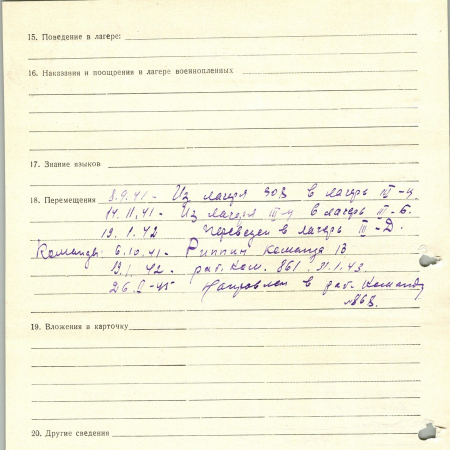 15. Поведение в лагере:
16. Наказания и поощрения в лагере военнопленных
17. Знание языков
18. Перемещения 8.9.41 - Из лагеря 308 в лагерь
14.11.41 - Из лагеря в лагерь III-Б.
19.1.42 переведен в лагерь III-D.
Команды: 6.10.41 - команда 13
19.1.42 - раб. ком. 861, 21.1.43
направлен в раб. команду
№868.
19. Вложения в карточку
20. Другие сведения